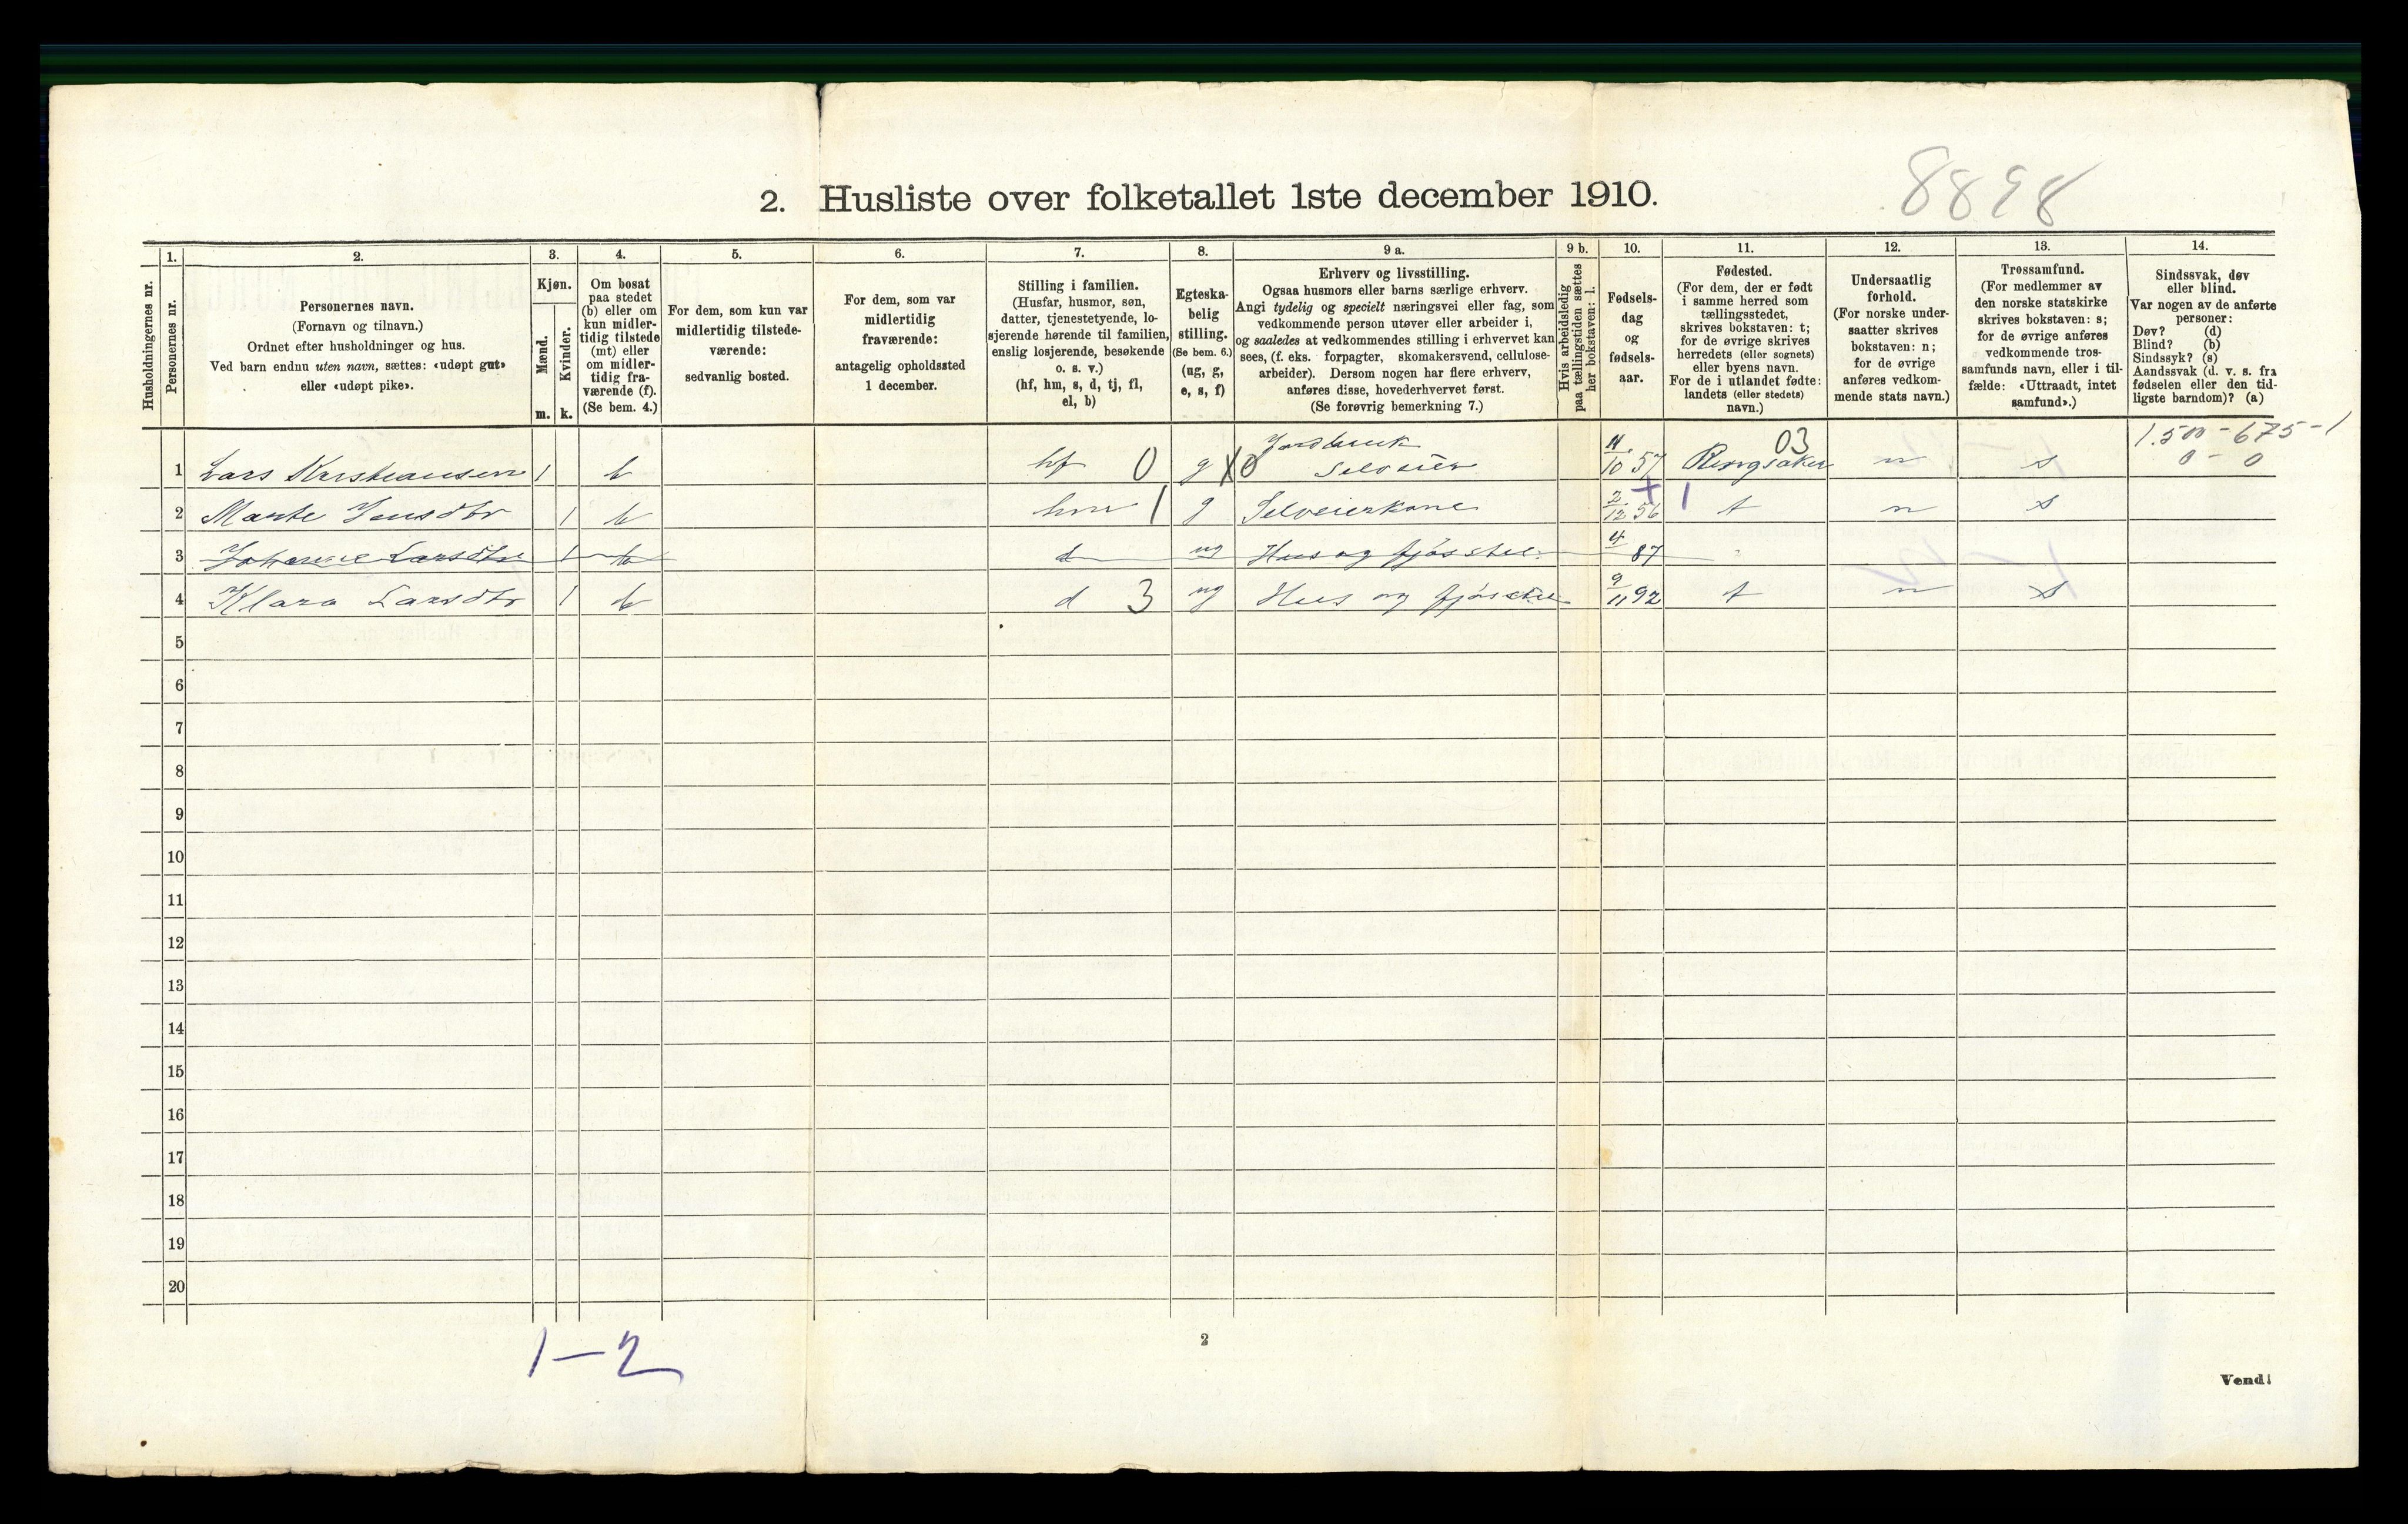 8898
2. Husliste over folketallet 1ste december 1910.
Husholdningernes nr.
1.
Personernes nr.
2.
Personernes navn.
(Fornavn og tilnavn.)
Ordnet efter husholdninger og hus.
Ved barn endnu uten navn, sættes: «udøpt gut»
eller «udøpt pike».
3.
Kjøn.
Mænd.
m.
Kvinder.
k.
4.
Om bosat
paa stedet
(b) eller om
kun midler-
tidig tilstede
(mt) eller
om midler-
tidig fra-
værende (f).
(Se bem. 4.)
5.
For dem, som kun var
midlertidig tilstede-
værende:
sedvanlig bosted.
6.
For dem, som var
midlertidig
fraværende:
antagelig opholdssted
1 december.
7.
Stilling i familien.
(Husfar, husmor, søn,
datter, tjenestetyende, lo-
sjerende hørende til familien,
enslig losjerende, besøkende
o. s. v.)
(hf, hm, s, d, tj, fl,
el, b)
8.
Egteska-
belig
stilling.
(Se bem. 6.)
(ug, g,
e, s, f)
9 a.
Erhverv og livsstilling.
Ogsaa husmors eller barns særlige erhverv.
Angi tydelig og specielt næringsvei eller fag, som
vedkommende person utøver eller arbeider i,
og saaledes at vedkommendes stilling i erhvervet kan
sees, (f. eks. forpagter, skomakersvend, cellulose-
arbeider). Dersom nogen har flere erhverv,
anføres disse, hovederhvervet først.
(Se forøvrig bemerkning 7.)
9 b.
Hvis arbeidsledig
paa tællingstiden sættes
her bokstaven: l.
10.
Fødsels-
dag
og
fødsels-
aar.
11.
Fødested.
(For dem, der er født
i samme herred som
tællingsstedet,
skrives bokstaven: t;
for de øvrige skrives
herredets (eller sognets)
eller byens navn.
For de i utlandet fødte:
landets (eller stedets)
navn.)
12.
Undersaatlig
forhold.
(For norske under-
saatter skrives
bokstaven: n;
for de øvrige
anføres vedkom-
mende stats navn.)
13.
Trossamfund.
(For medlemmer av
den norske statskirke
skrives bokstaven: s;
for de øvrige anføres
vedkommende tros-
samfunds navn, eller i til-
fælde: «Uttraadt, intet
samfund».)
14.
Sindssvak, døv
eller blind.
Var nogen av de anførte
personer:
Døv? (d)
Blind? (b)
Sindssyk? (s)
Aandssvak (d. v. s. fra
fødselen eller den tid-
ligste barndom)? (a)
Jordbruk 03 1.500-675-1
1 Lars Kristiansen 1 b hf 0 g X0 Selveier 11/10 57 Ringsaker n s 0-0
2 Marte Jensdtr 1 b hm 1 g Selveierkone 2/12 56 + 1 t n s
3 Johanne Larsdtr 1 b d ug Hus og fjøsstel 4/ 87
4 Klara Larsdtr 1 b d 3 ug Hus og fjøsstel 9/11 92 t n s
5
6
7
8
9
10
11
12
13
14
15
16
17
18
19
20
1-2
2
Vend!